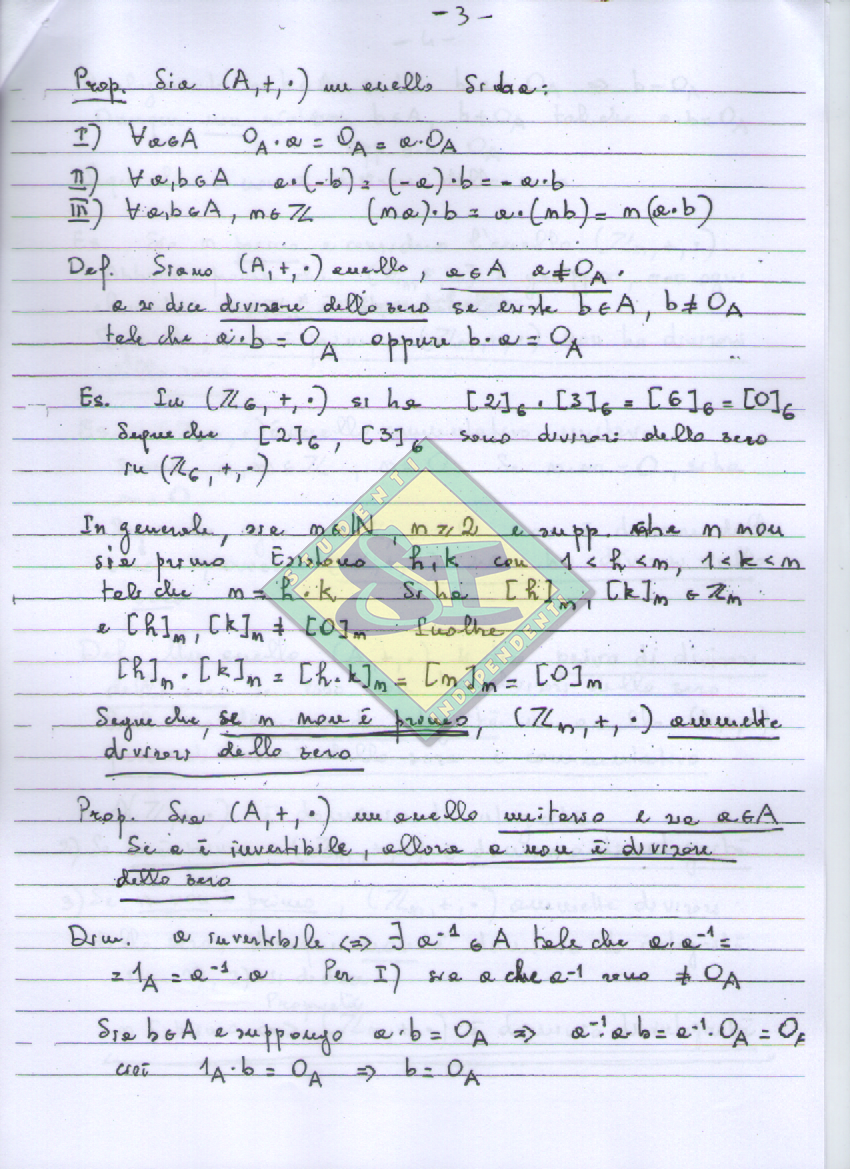 - 3 -
Prop. Sia (A,+,·) un anello Si ha:
I) ∀a∈A 0_A·a = 0_A = a·0_A
II) ∀a,b∈A a·(-b) = (-a)·b = -a·b
III) ∀a,b∈A, m∈ℤ (ma)·b = a·(mb) = m(a·b)
Def. Siano (A,+,·) anello, a∈A a≠0_A.
a si dice divisore dello zero se esiste b∈A, b≠0_A
tale che a·b = 0_A oppure b·a = 0_A
Es. In (ℤ_6,+,·) si ha [2]_6·[3]_6 = [6]_6 = [0]_6
Segue che [2]_6, [3]_6 sono divisori dello zero
in (ℤ_6,+,·)
In generale, sia n∈ℕ, n≥2 e supp. che n non
sia primo Esistono h,k con 1<h<n, 1<k<n
tale che n = h·k Si ha [h]_n, [k]_n ∈ ℤ_n
e [h]_n, [k]_n ≠ [0]_n Inoltre
[h]_n·[k]_n = [h·k]_n = [n]_n = [0]_n
Segue che, se n non è primo, (ℤ_n,+,·) ammette
divisori dello zero
STUDENTI
INDIPENDENTI
SI
Prop. Sia (A,+,·) un anello unitario e sia a∈A
Se a è invertibile, allora a non è divisore
dello zero
Dim. a invertibile <=> ∃ a^-1 ∈ A tale che a·a^-1 =
= 1_A = a^-1·a Per I) sia a che a^-1 sono ≠ 0_A
Sia b∈A e suppongo a·b = 0_A => a^-1·a·b = a^-1·0_A = 0_A
cioè 1_A·b = 0_A => b = 0_A